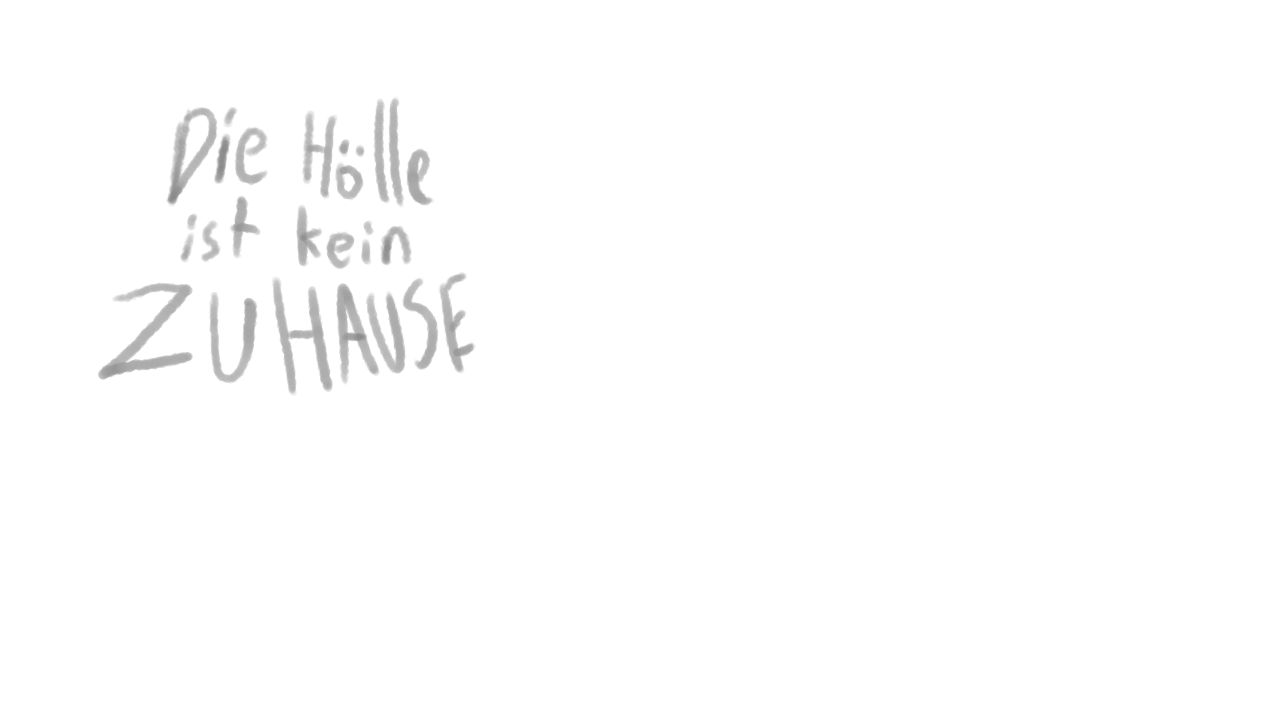 Die Hölle
ist kein
ZUHAUSE